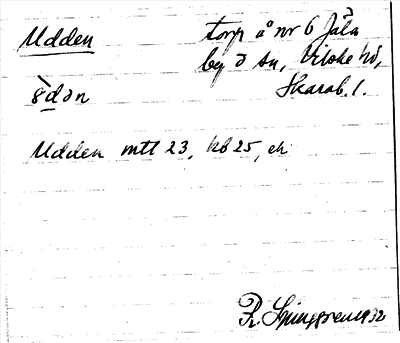 Udden torp å nr 6 Jäla
by o sn, Vilske hd,
Skarab. l.
Udden mtl 23, kb 25, ek